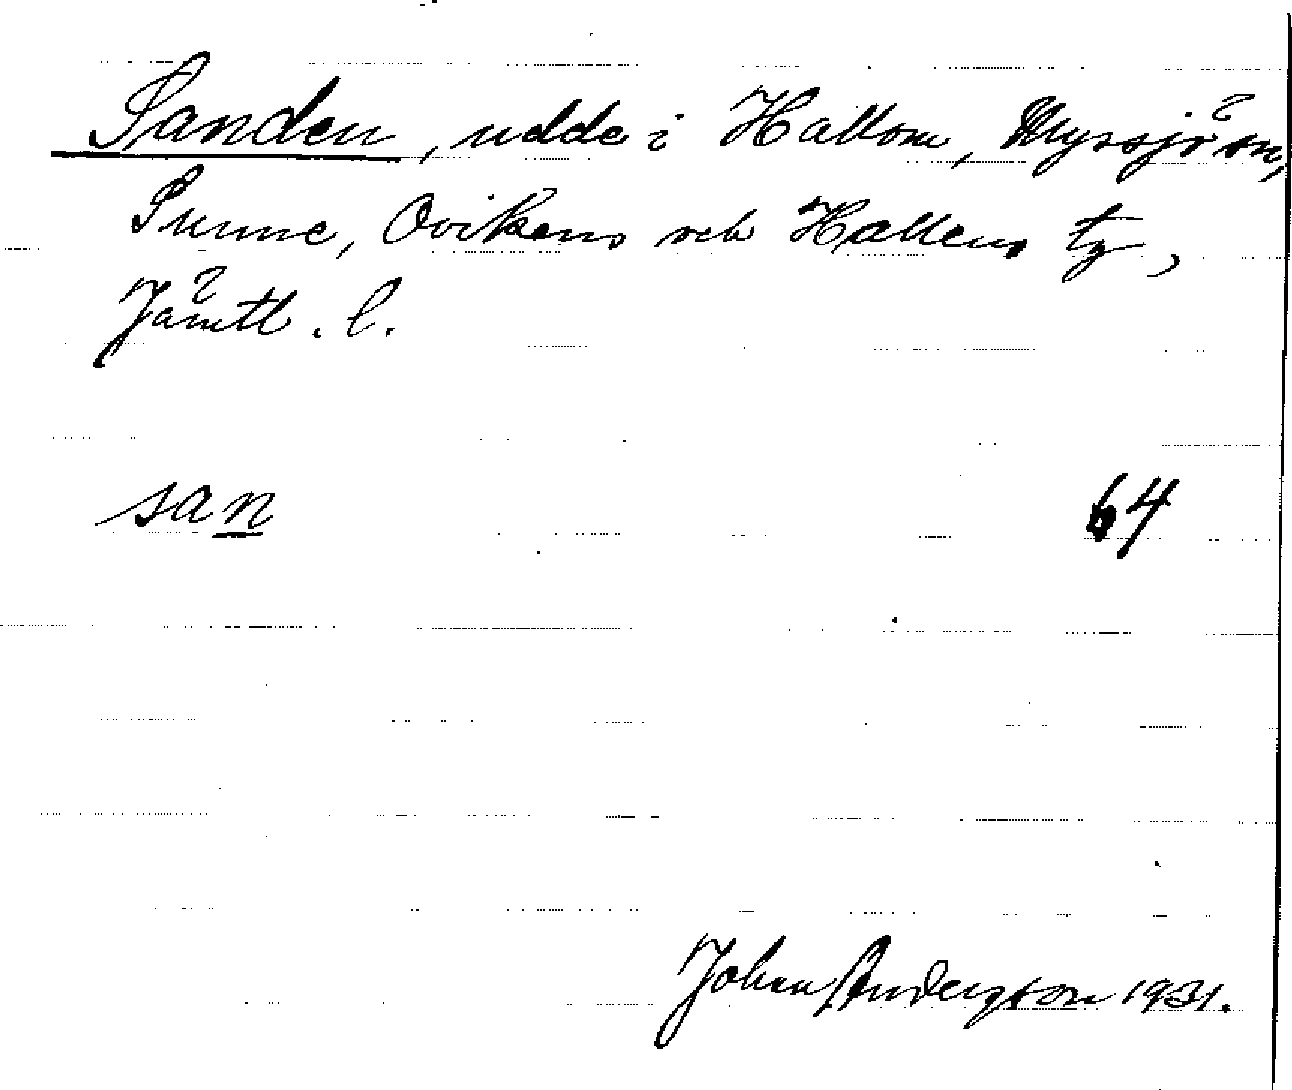 Sanden, udde i Hallom, Myrsjön,
Sunne, Ovikens och Hallens tg,
Jämtl. l.
san 64
Johan Andergson 1931.